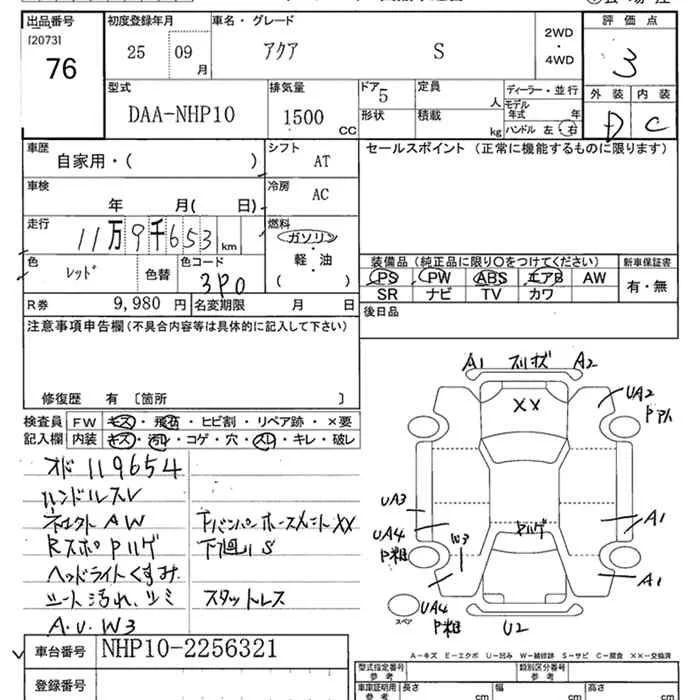 出品番号 初度登録年月 車名・グレード 評価点
[2073]
76
25 09 月
アクア S
2WD
・
4WD
3
型式 排気量 ドア 定員 ディーラー・並行 外装 内装
DAA-NHP10 1500 CC 5 人 モデル年式 年
形状 積載 kg ハンドル 左・右
D C
車歴 シフト セールスポイント (正常に機能するものに限ります)
自家用・( ) AT
車検 冷房
年 月( 日) AC
走行 燃料
11万9千653 km ガソリン
軽・油
( )
色 色替 色コード
レッド 3P0
装備品 (純正品に限り〇をつけてください) 新車保証書
PS PW ABS エアB AW 有・無
SR ナビ TV カワ
R券 9,980 円 名変期限 月 日
後日品
注意事項申告欄(不具合内容等は具体的に記入して下さい)
修復歴 有 〔箇所 〕
検査員 FW キズ・飛石・ヒビ割・リペア跡・×要
記入欄 内装 キズ・汚れ・コゲ・穴・スレ・キレ・破レ
オド 119654
ハンドルスレ
AW
ヘッドライトくすみ
シート汚れ、シミ
A.U.W3
下廻りS
スタットレス
A1 A2
XX
UA2
UA3
UA4
W3
A1
A1
スペア
UA4
U2
車台番号 NHP10-2256321
登録番号
A-キズ E-エクボ U-凹み W-補修跡 S-サビ C-腐食 ××-交換済
型式指定番号 参考 類別区分番号 参考
車庫証明用 参考 長さ cm 幅 cm 高さ cm